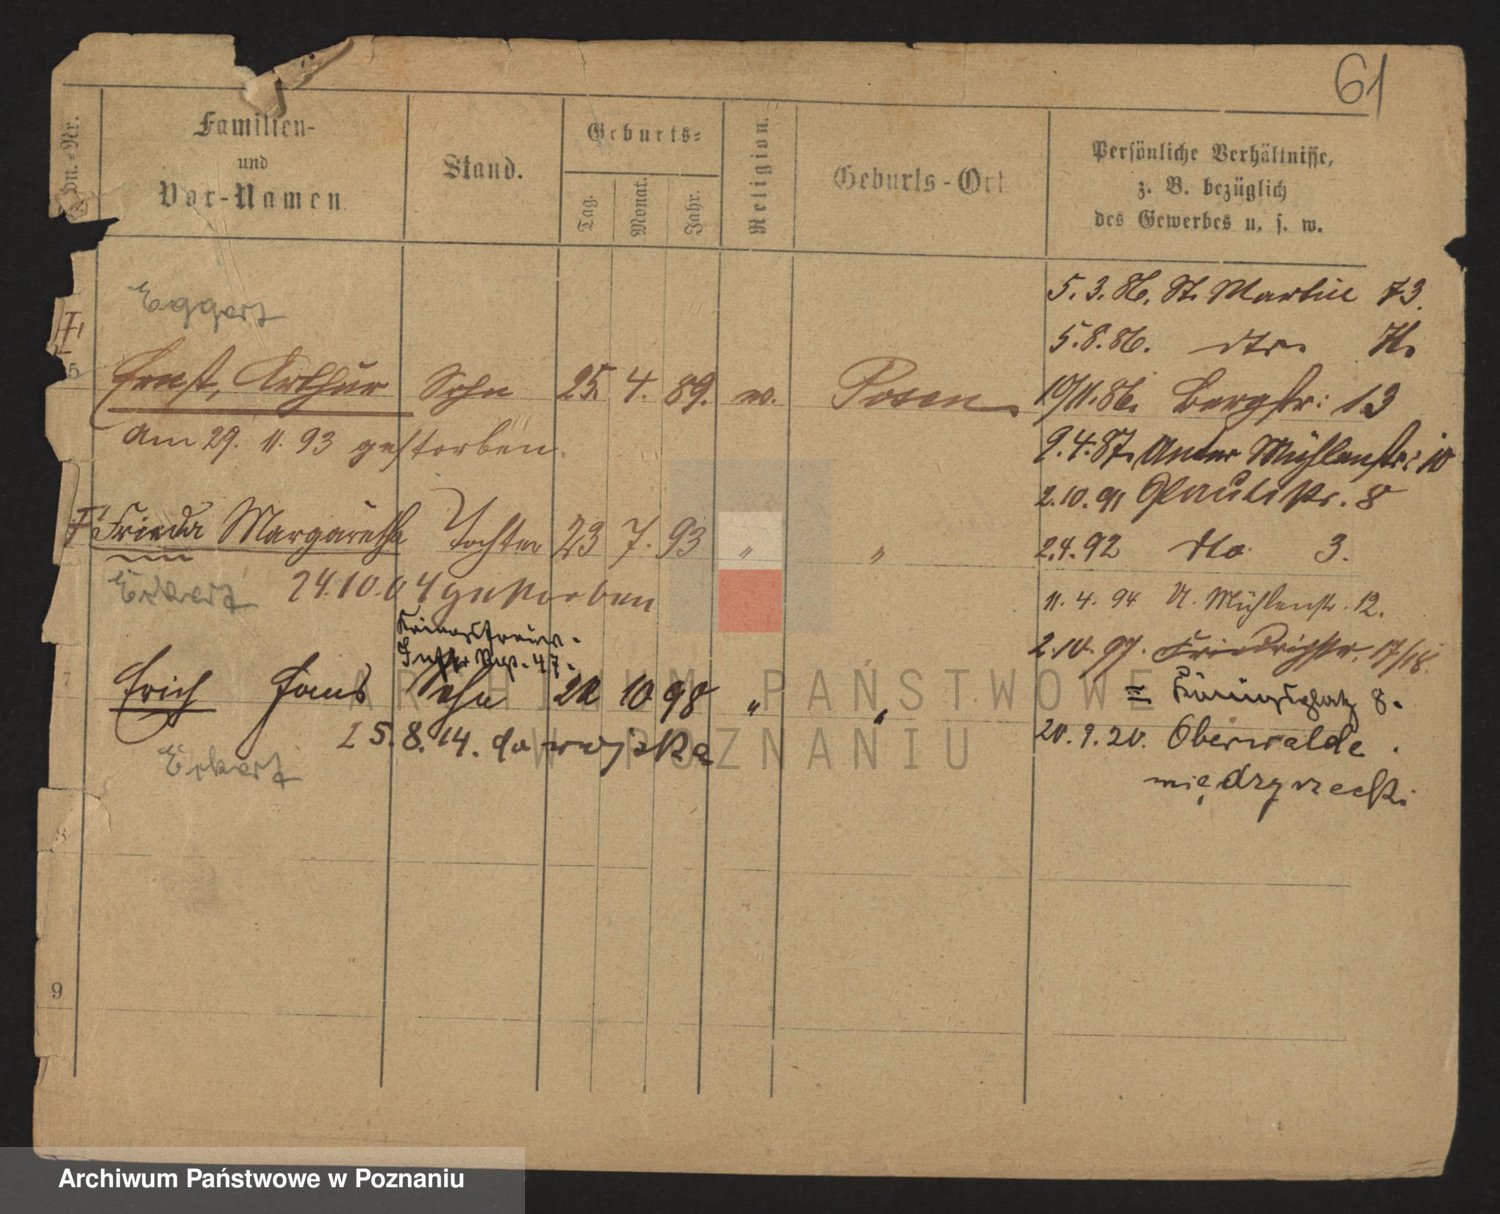 61
Lfdn.-Nr.
Familien-
und
Vor-Namen
Stand.
Geburts-
Tag.
Monat.
Jahr.
Religion.
Geburts-Ort
Persönliche Verhältnisse,
z. B. bezüglich
des Gewerbes u. s. w.
Eggert
5.3.86. St. Martin 73.
5.8.86. dto. 71.
5
Ernst, Arthur Sohn 25. 4. 89. ev. Posen
19/11.86. Bergstr: 13
am 29. 11. 93 gestorben.
9.4.87. Unter Mühlenstr: 10
2.10.91 Glaubistr. 8
Frieda Margarethe Tochter 23 7. 93 " "
2.4.92 dto 3.
Eckert 24.10.04 gestorben
11.4.94 U. Mühlenstr. 12.
2.10.97. Friedrichstr. 17/18.
47.
7
Erich Hans Sohn 22 10 98 " "
= Königsplatz 8.
25.8.14. do wojska
20.9.20. Oberwalde.
Eckert
międzyrzecki
8
9
ARCHIWUM PAŃSTWOWE
W POZNANIU
Archiwum Państwowe w Poznaniu